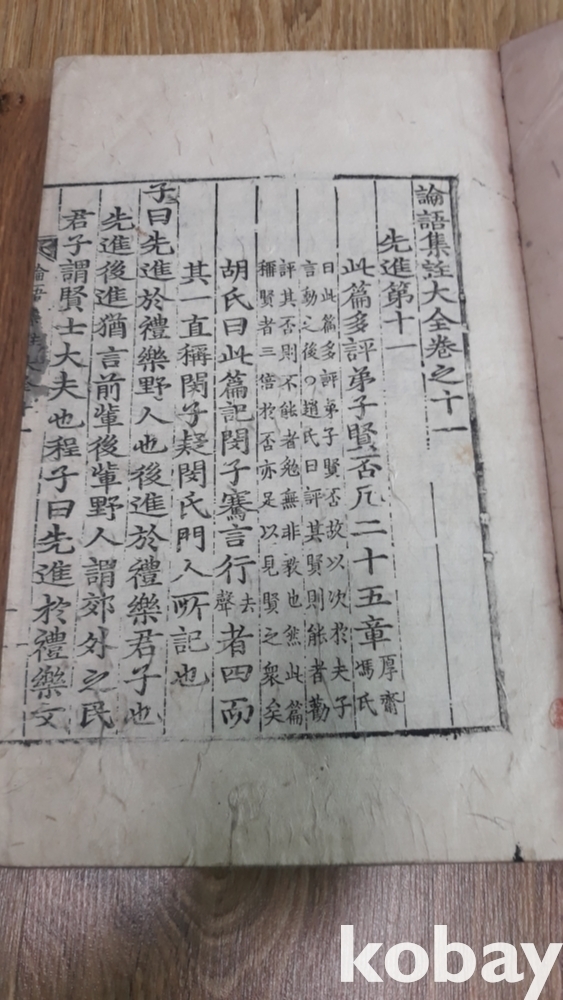 論語集註大全卷之十一
先進第十一
此篇多評弟子賢否凡二十五章
厚齋
馮氏
曰此篇多評弟子賢否故以次於夫子
言動之後○趙氏曰評其賢則能者勸
評其否則不能者勉無非敎也然此篇
稱賢者三倍於否亦足以見賢之衆矣
胡氏曰此篇記閔子騫言行去聲者四而
其一直稱閔子疑閔氏門人所記也
子曰先進於禮樂野人也後進於禮樂君子也
先進後進猶言前輩後輩野人謂郊外之民
君子謂賢士大夫也程子曰先進於禮樂文
kobay